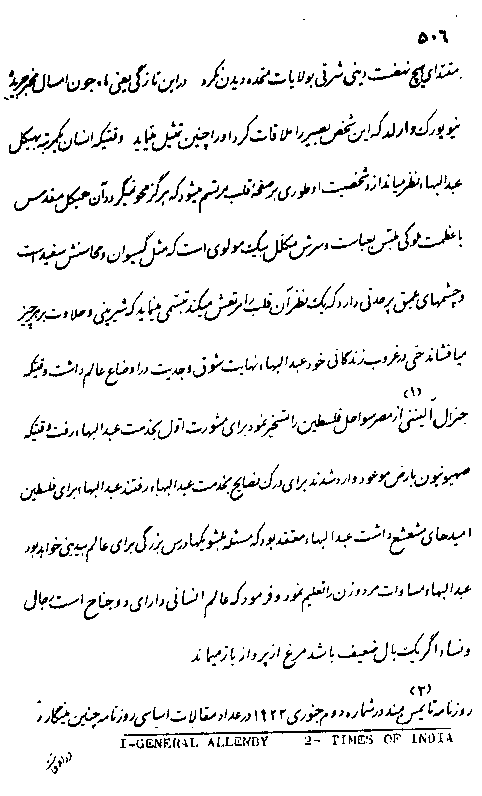 ۵۰۶
مقتدای هیچ نهضت دینی شرقی بولایات متحده دیدن نکرد در این تازگی یعنی ۱۰ جون امسال مخبر جریدهٔ
نیویورک وارلد که این شخص بصیر را ملاقات کرد او را چنین تمثیل مینماید وقتیکه انسان یکمرتبه بهیکل
عبدالبهاء نظر میاندازد شخصیت او طوری بر صفحهٔ قلب مرتسم میشود که هرگز محو نمیگردد آن هیکل مقدس
با عظمت ملوکی ملبس بعباست و سرش مکلل بیک مولوی است که مثل گیسوان و محاسنش سفید است
و چشمهای عمیق پر حدتی دارد که یک نظر آن قلب را مرتعش میکند تبسمی مینماید که شیرینی و حلاوت بر هر چیز
میافشاند حتی در غروب زندگانی خود عبدالبهاء نهایت شوق و جدیت در اوضاع عالم داشت وقتیکه
جنرال النبی (۱) از مصر سواحل فلسطین را تسخیر نمود برای مشورت اول بخدمت عبدالبهاء رفت وقتیکه
صهیونیون بارض موعود وارد شدند برای درک نصایح بخدمت عبدالبهاء رفتند عبدالبهاء برای فلسطین
امیدهای مشعشع داشت عبدالبهاء معتقد بود که مسئله بلشویکها درس بزرگی برای عالم بیدینی خواهد بود
عبدالبهاء مساوات مرد و زن را تعلیم نمود و فرمود که عالم انسانی دارای دو جناح است رجال
و نساء اگر یک بال ضعیف باشد مرغ از پرواز باز میماند
روزنامه تایمس هند (۲) در شماره دوم جنوری ۱۹۲۲ در عداد مقالات اساسی روزنامه چنین مینگارد
1-GENERAL ALLENBY 2- TIMES OF INDIA